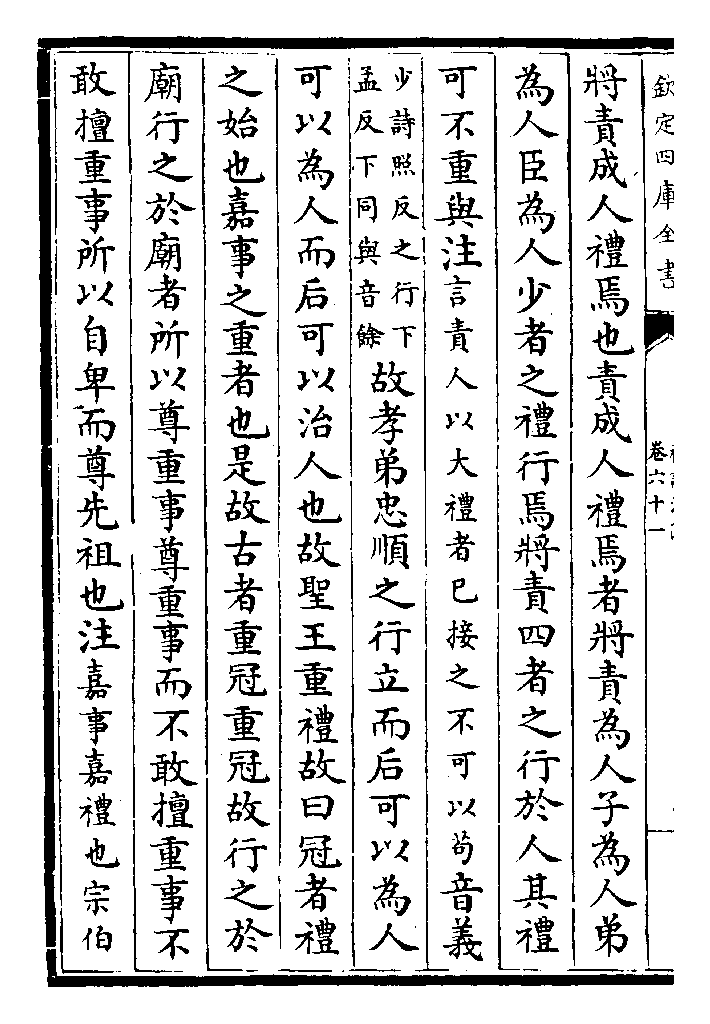 欽定四庫全書
卷六十一
將責成人禮焉也責成人禮焉者將責為人子為人弟
為人臣為人少者之禮行焉將責四者之行於人其禮
可不重與注言責人以大禮者已接之不可以苟音義
少詩照反之行下
孟反下同與音餘
故孝弟忠順之行立而后可以為人
可以為人而后可以治人也故聖王重禮故曰冠者禮
之始也嘉事之重者也是故古者重冠重冠故行之於
廟行之於廟者所以尊重事尊重事而不敢擅重事不
敢擅重事所以自卑而尊先祖也注嘉事嘉禮也宗伯